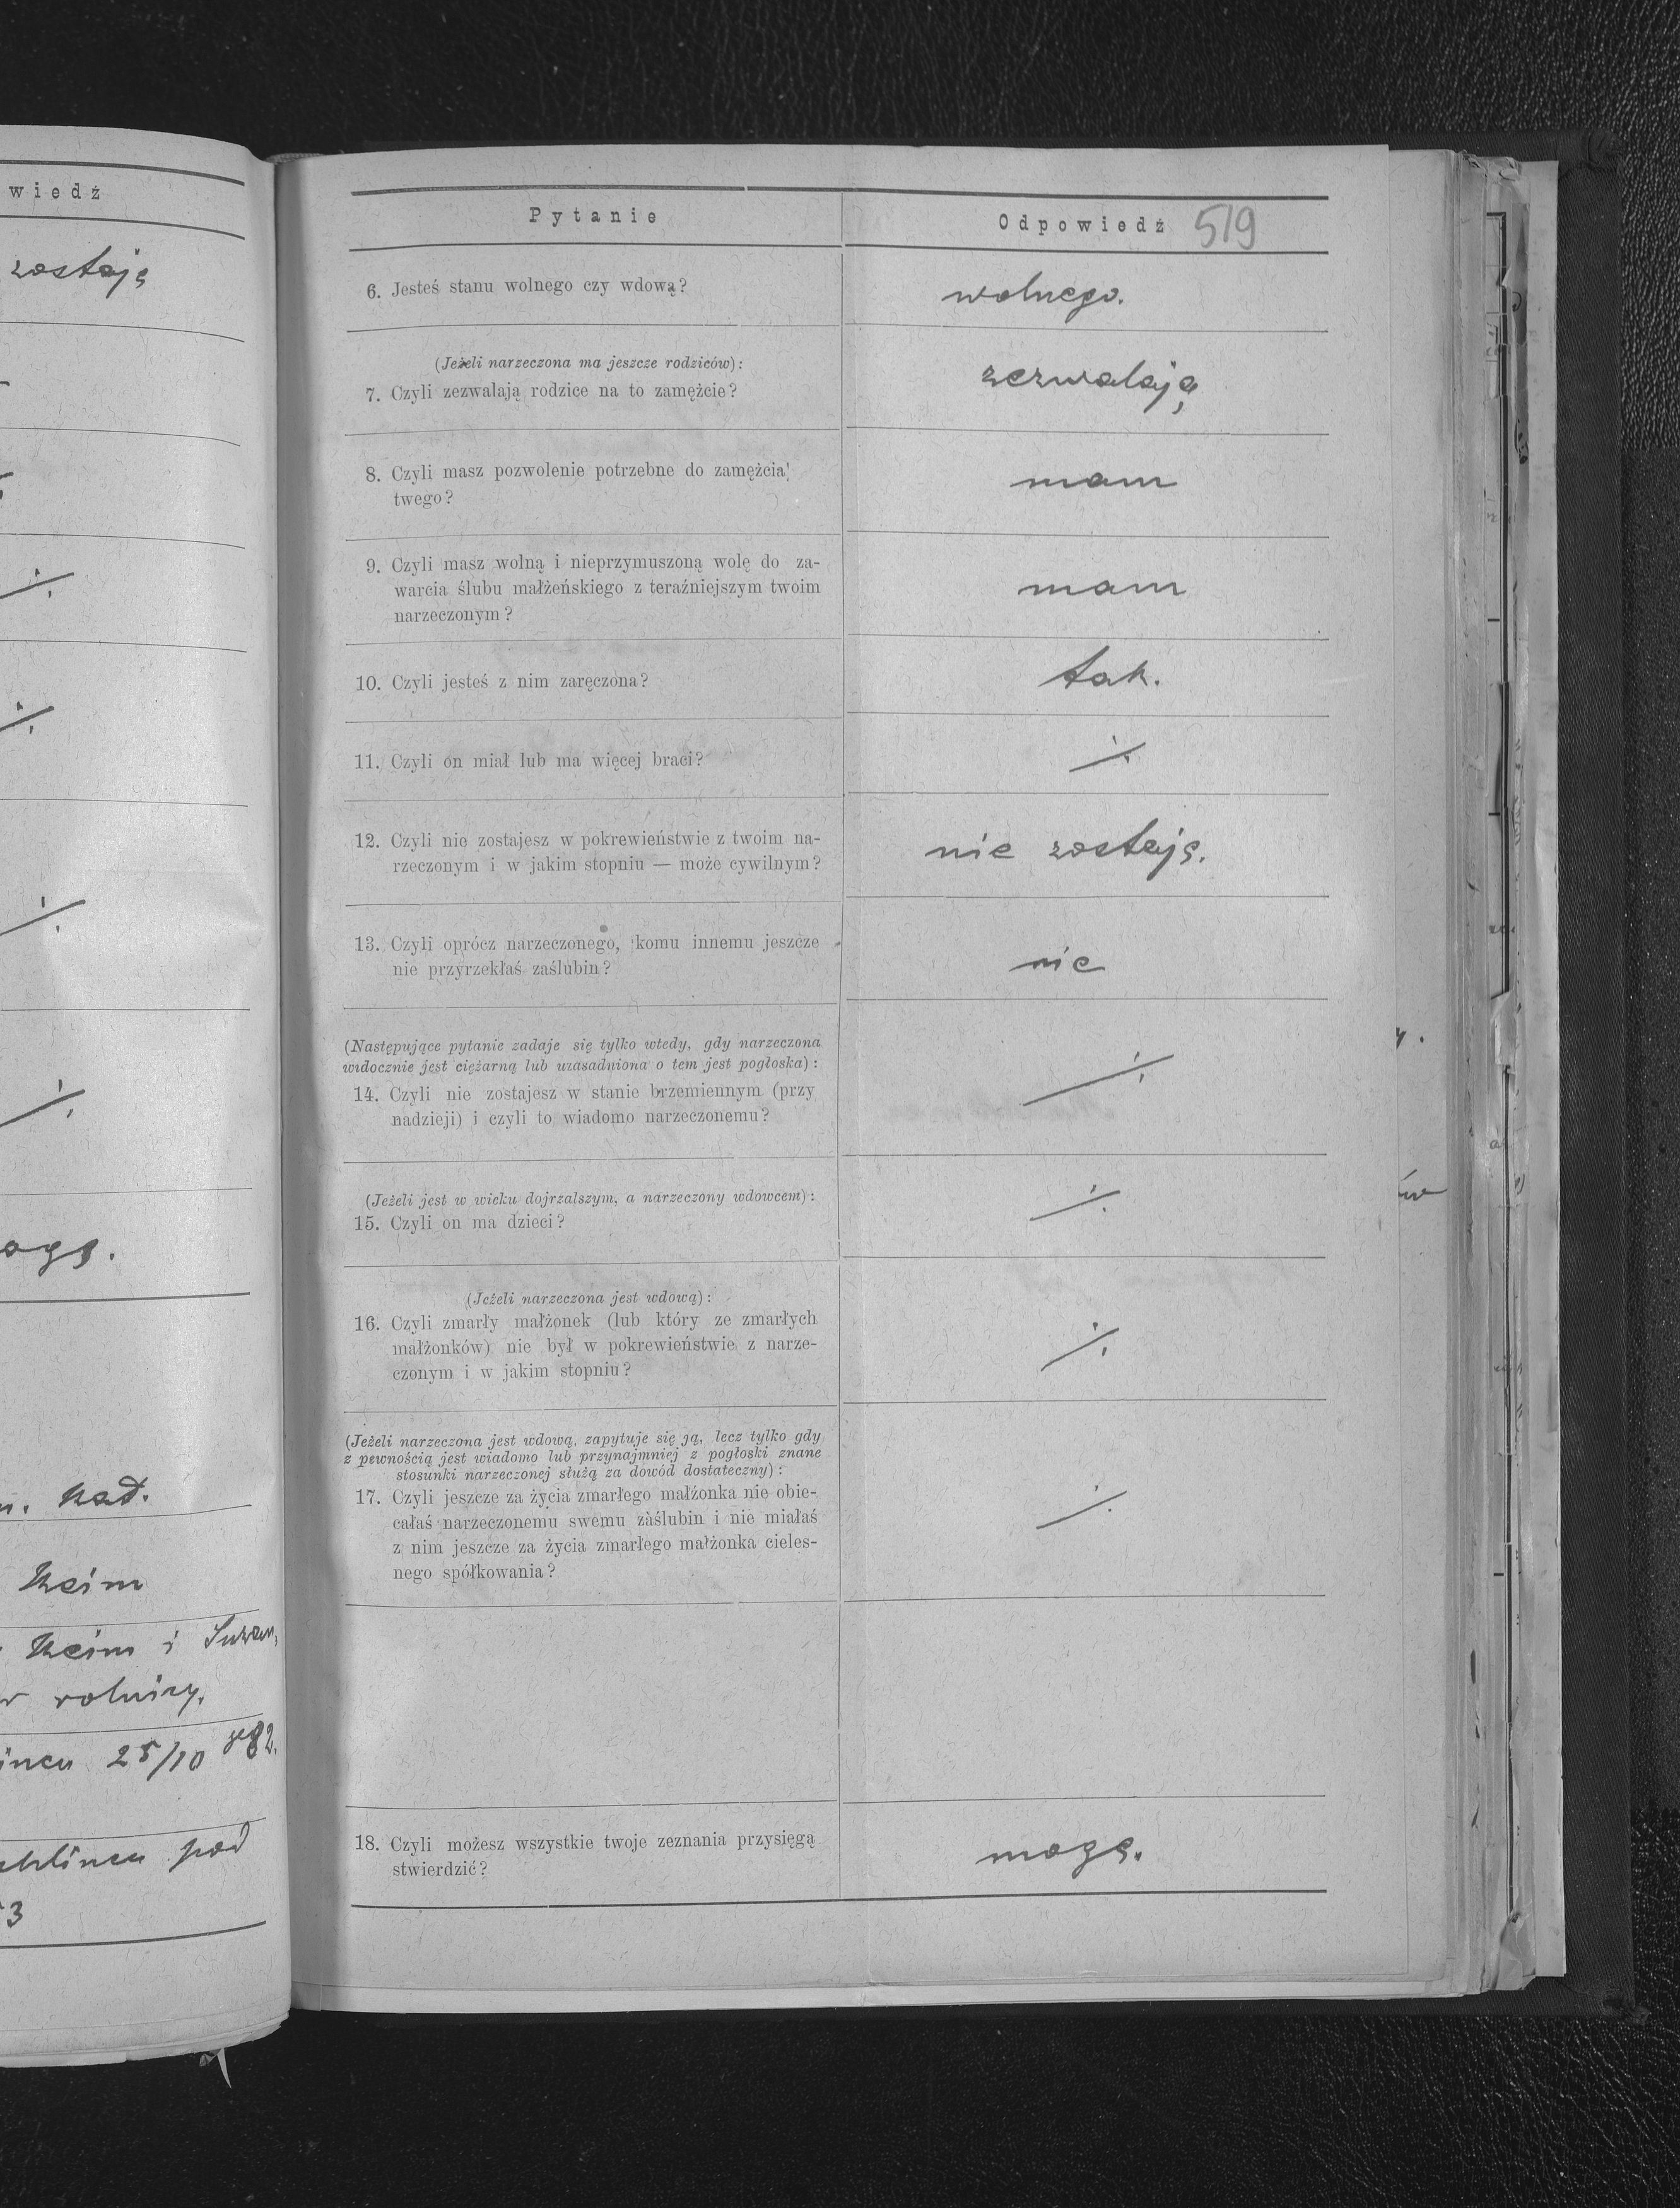 wiedź
zostaję
ogę.
kat.
Keim
Keim i Suzan,
rolnicy.
25/10 882.
pod
3
Pytanie
Odpowiedź 519
6. Jesteś stanu wolnego czy wdową?
wolnego.
(Jeżeli narzeczona ma jeszcze rodziców):
7. Czyli zezwalają rodzice na to zamężcie?
zezwalają
8. Czyli masz pozwolenie potrzebne do zamężcia
twego?
mam
9. Czyli masz wolną i nieprzymuszoną wolę do za-
warcia ślubu małżeńskiego z teraźniejszym twoim
narzeczonym?
mam
10. Czyli jesteś z nim zaręczona?
tak.
11. Czyli on miał lub ma więcej braci?
·/.
12. Czyli nie zostajesz w pokrewieństwie z twoim na-
rzeczonym i w jakim stopniu — może cywilnym?
nie zostaję.
13. Czyli oprócz narzeczonego, komu innemu jeszcze
nie przyrzekłaś zaślubin?
nie
(Następujące pytanie zadaje się tylko wtedy, gdy narzeczona
widocznie jest ciężarną lub uzasadniona o tem jest pogłoska):
14. Czyli nie zostajesz w stanie brzemiennym (przy
nadzieji) i czyli to wiadomo narzeczonemu?
·/.
(Jeżeli jest w wieku dojrzalszym, a narzeczony wdowcem):
15. Czyli on ma dzieci?
·/.
(Jeżeli narzeczona jest wdową):
16. Czyli zmarły małżonek (lub który ze zmarłych
małżonków) nie był w pokrewieństwie z narze-
czonym i w jakim stopniu?
·/.
(Jeżeli narzeczona jest wdową, zapytuje się ją, lecz tylko gdy
z pewnością jest wiadomo lub przynajmniej z pogłoski znane
stosunki narzeczonej służą za dowód dostateczny):
17. Czyli jeszcze za życia zmarłego małżonka nie obie-
całaś narzeczonemu swemu zaślubin i nie miałaś
z nim jeszcze za życia zmarłego małżonka cieles-
nego spółkowania?
·/.
18. Czyli możesz wszystkie twoje zeznania przysięgą
stwierdzić?
mogę.